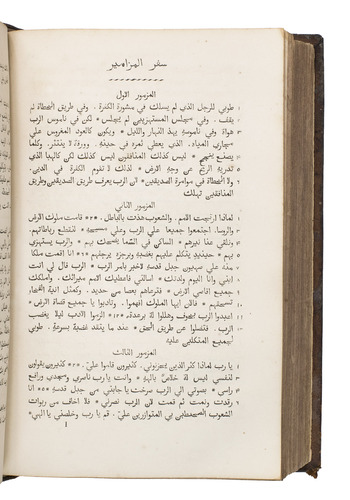 سفر المزامير
المزمور الاول
طوبي للرجل الذي لم يسلك في مشورة الكفرة . وفي طريق الخطاة لم
يقف . وفي مجلس المستهزيين لم يجلس * لكن في ناموس الرب
هواه وفي ناموسه يهذ النهار والليل * ويكون كالعود المغروس علي
مجاري المياه . الذي يعطي ثمره في حينه . وورقه لا ينتثر . وكلما
يصنع ينجح * ليس كذلك المنافقون ليس كذلك لكن كالهبا الذي
تذريه الريح عن وجه الارض * لذلك لا تقوم الكفرة في الدين .
ولا الخطاة في موامرة الصديقين * ان الرب يعرف طريق الصديقين وطريق
المنافقين تهلك
المزمور الثاني
لماذا ارتجت الامم . والشعوب هذت بالباطل . * قامت ملوك الارض
والروسا . اجتمعوا جميعا علي الرب وعلي مسيحه * لنقطع رباطاتهم .
ونلقي عنا نيرهم * الساكن في السما يضحك بهم * والرب يستهزي
بهم * حينيذ يكلمهم بغضبه وبرجزه يرجفهم * انا اقمت ملكا
منه علي صهيون جبل قدسه لاخبر بامر الرب * الرب قال لي انت
ابني وانا اليوم ولدتك * اسالني فاعطيك الامم ميراثك . وسلطانك الي
جميع اقاصي الارض * فترعاهم بعصا من حديد . وكمثل انية الفخار
تسحقهم * فالان ايها الملوك افهموا . وتادبوا يا جميع قضاة الارض *
اعبدوا الرب بخوف وهللوا له برعدة * الزموا الادب ليلا يغضب
الرب . فتضلوا عن طريق الحق * عند ما يتقد غضبه بسرعة . طوبي
لجميع المتكلين عليه
المزمور الثالث
يا رب لماذا كثر الذين يحزنوني . كثيرون قاموا علي * كثيرون يقولون
لنفسي ليس له خلاص بالهه * وانت يا رب ناصري ومجدي ورافع
راسي * بصوتي الي الرب صرخت فاستجابني من جبل قدسه * انا
رقدت ونمت ثم قمت لان الرب نصرني * فلا اخاف من ربوات
الشعوب المحيطين بي المتوازرين علي . قم يا رب وخلصني يا الهي *
١